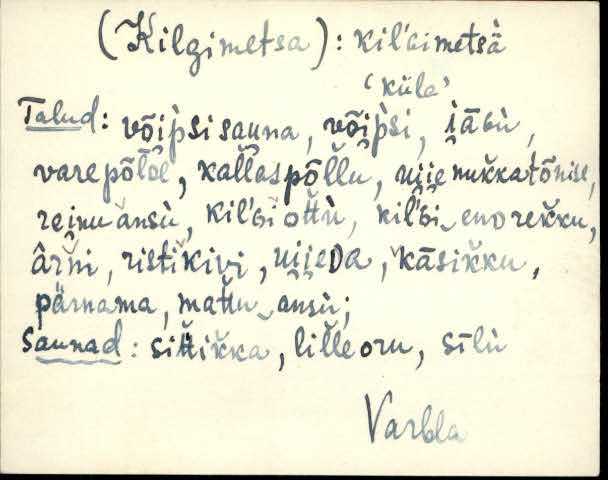 (Kilgimetsa): kil'ɢimetsä
‘küla’
Talud: võip̀si sauna, võip̀si, i̯āʙù,
varepõlᴅe, kallaspõllu, ui̯i̯e nukkatõnise,
rei̯nu ansù, kil'ɢi ottù, kil'ɢi‿eno rekku,
ârni, ristikivi, ui̯i̯eᴅa, kāsikku,
pärnama, mattu‿ansù;
Saunad: sittikka, lille oru, sīlù
Varbla